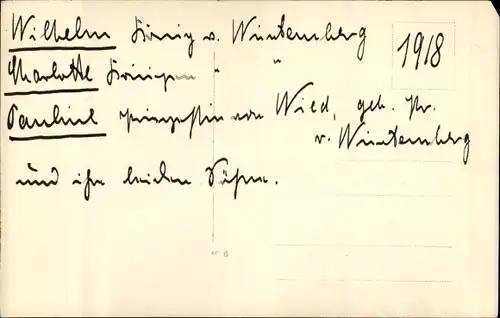 Wilhelm König v. Württemberg
1918
Charlotte Königin " "
Pauline Prinzessin von Wied, geb. Pr.
v. Württemberg
und ihre beiden Söhne.